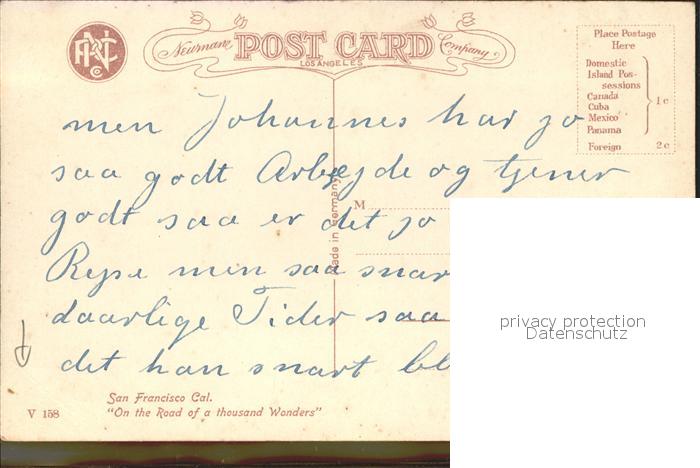 Newman
POST CARD
Company
LOS ANGELES
Place Postage
Here
Domestic
Island Pos-
sessions
Canada
Cuba
Mexico
Panama
1c
Foreign 2c
men Johannes har jo
saa godt Arbejde og tjener
godt saa er det jo
Rejse men saa snar
daarlige Tider saa
det han snart bl
M
Made in Germany
privacy protection
Datenschutz
San Francisco Cal.
V 158 "On the Road of a thousand Wonders"